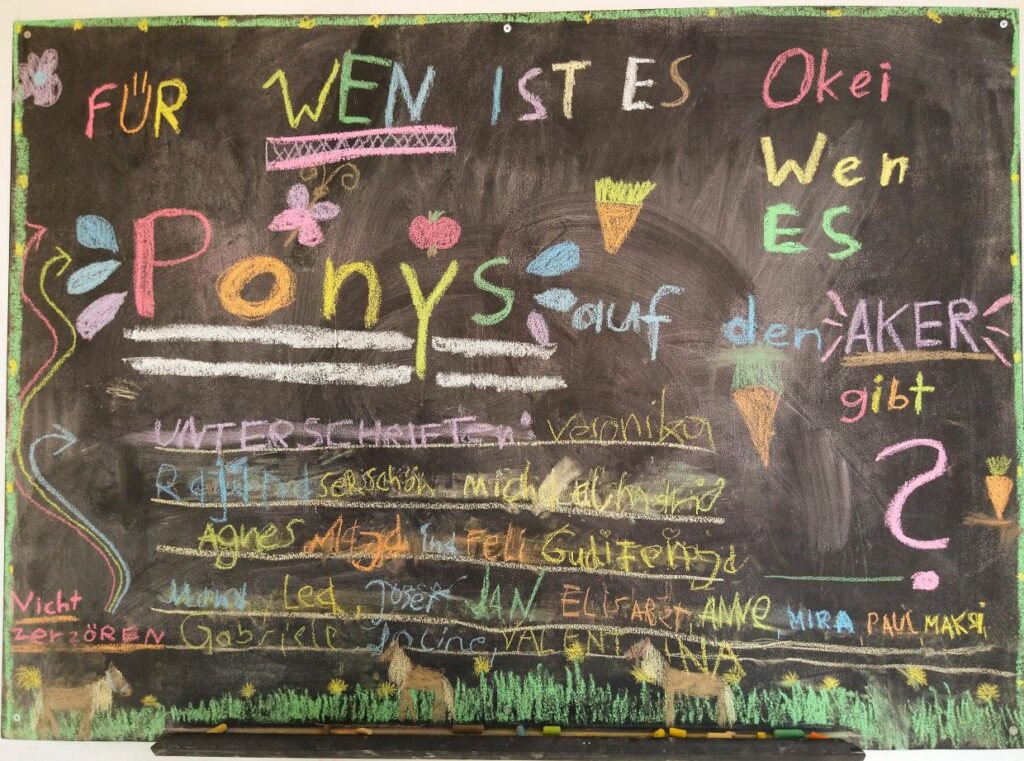 FÜR WEN IST ES Okei
Wen
ES
Ponys auf den AKER
gibt
?
UNTERSCHRIFTEN: veronika
serschön mich
Agnes Magda und FELi Gudi
Lea, Josef JAN ELISABET, ANNE, MIRA PAUL MAKSi,
Gabriele VALENTINA
Nicht
zerzören